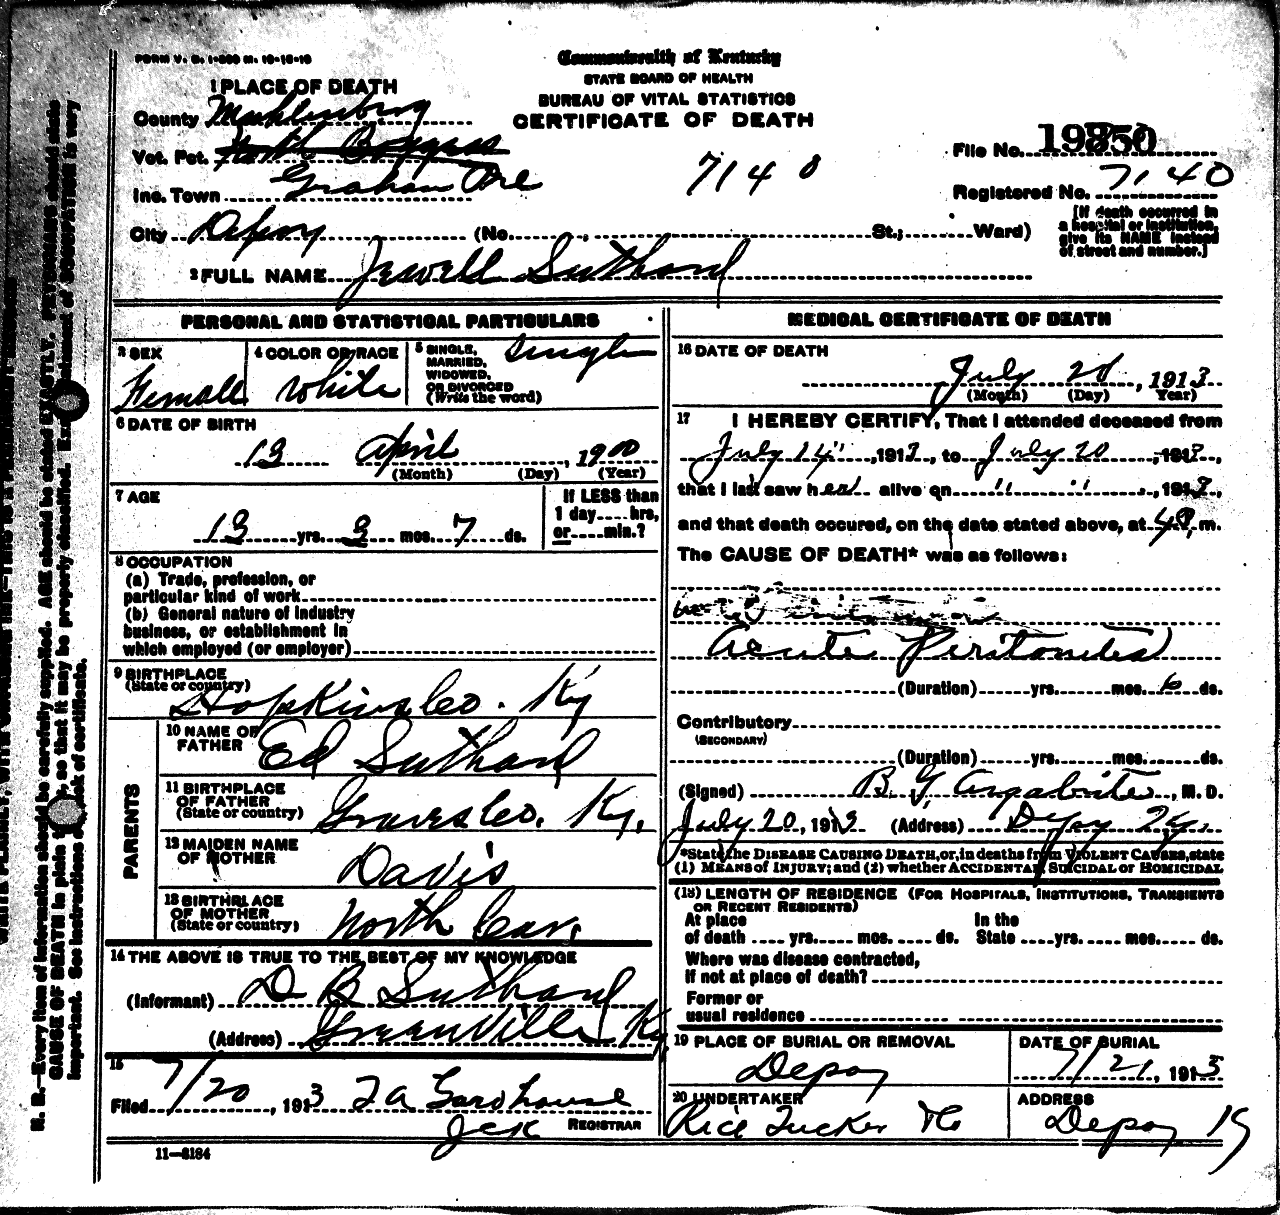 FORM V. S. 1-
Commonwealth of Kentucky
STATE BOARD OF HEALTH
BUREAU OF VITAL STATISTICS
CERTIFICATE OF DEATH
1 PLACE OF DEATH
County Muhlenburg
Vot. Pct.
Inc. Town Graham
City Depoy (No. , St.; Ward)
7140
File No.
Registered No. 7140
[If death occurred in
a hospital or institution,
give its NAME instead
of street and number.]
2 FULL NAME Jewell Suthard
PERSONAL AND STATISTICAL PARTICULARS
3 SEX
Femall
4 COLOR OR RACE
White
5 SINGLE,
MARRIED,
WIDOWED,
OR DIVORCED
(Write the word)
Single
6 DATE OF BIRTH
13 April , 1900
(Month) (Day) (Year)
7 AGE
13 yrs. 3 mos. 7 ds.
If LESS than
1 day hrs,
or min.?
8 OCCUPATION
(a) Trade, profession, or
particular kind of work
(b) General nature of industry
business, or establishment in
which employed (or employer)
9 BIRTHPLACE
(State or country)
Hopkins Co. Ky
PARENTS
10 NAME OF
FATHER
Ed Suthard
11 BIRTHPLACE
OF FATHER
(State or country)
Graves Co. Ky.
12 MAIDEN NAME
OF MOTHER
Davis
13 BIRTHPLACE
OF MOTHER
(State or country)
North Car.
14 THE ABOVE IS TRUE TO THE BEST OF MY KNOWLEDGE
(Informant) D B Suthard
(Address) Greenville Ky.
15
Filed 7/20, 1913
REGISTRAR
11-3184
MEDICAL CERTIFICATE OF DEATH
16 DATE OF DEATH
July 20, 1913
(Month) (Day) Year)
17 I HEREBY CERTIFY, That I attended deceased from
July 14, 1913, to July 20, 1913,
that I last saw her alive on " ", 1913,
and that death occured, on the date stated above, at m.
The CAUSE OF DEATH* was as follows:
Acute Peritonitis
(Duration) yrs. mos. 6 ds.
Contributory
(SECONDARY)
(Duration) yrs. mos. ds.
(Signed) B. G. Argabrite, M. D.
July 20, 1913 (Address) Depoy Ky.
*State the DISEASE CAUSING DEATH, or, in deaths from VIOLENT CAUSES, state
(1) MEANS of INJURY; and (2) whether ACCIDENTAL, SUICIDAL or HOMICIDAL
(18) LENGTH OF RESIDENCE (FOR HOSPITALS, INSTITUTIONS, TRANSIENTS
OR RECENT RESIDENTS)
At place
of death yrs. mos. ds.
In the
State yrs. mos. ds.
Where was disease contracted,
if not at place of death?
Former or
usual residence
19 PLACE OF BURIAL OR REMOVAL
Depoy
DATE OF BURIAL
7/21, 1913
20 UNDERTAKER
Rice Tucker
ADDRESS
Depoy Ky